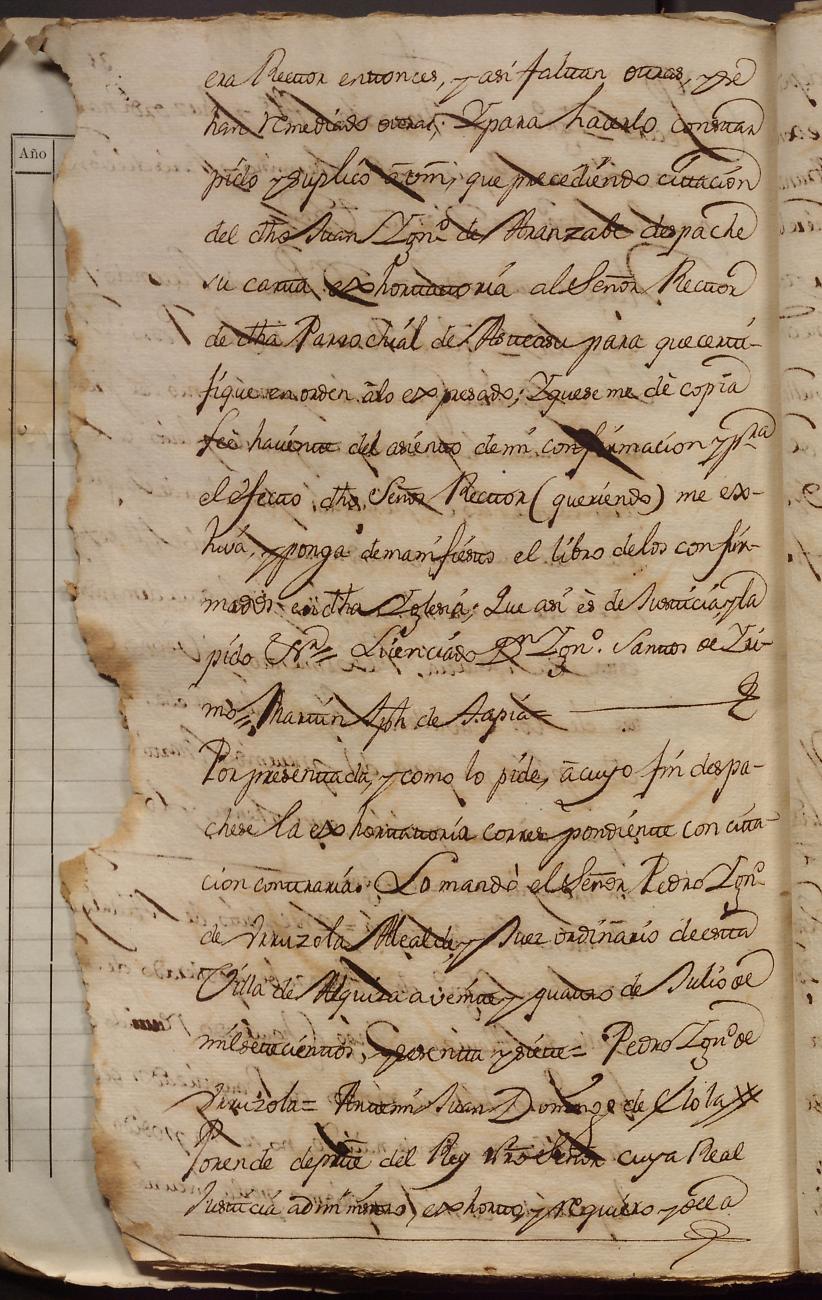 Año
era Rector entonces, y asi faltan otras, y se
han remediado otras; Y para hacerlo constar
pido y suplico à vm; que precediendo cittacion
del dho Juan Ygn.º de Aranzabe despache
su carta exhortatoria al Señor Rector
de dha Parrochial de Asteasu para que certi-
fique en orden àlo expresado; Y que se me dè copia
feè haciente del asiento de mi confirmacion y p.ra
el efecto dho Señor Rector (queriendo) me ex-
hiva, y ponga de manifiesto el libro delos confir-
mados en dha Yglesia; Que asi ès de Justicia y la
pido &.ª = Licenciado D.n Ygn.º Santos de
mo = Martin Jph de Tapia =
Por presentada, y como lo pide, à cuyo fin despa-
chese la exhortatoria correspondiente con citta-
cion contraria. Lo mandò el Señor Pedro Ygn.º
de Yrruzola Alcalde, y Juez ordinario de esta
Villa de Alquiza a veinte y quatro de Julio de
mil setecientos, y sesenta y siete = Pedro Ygn.º de
Yrruzola = Antemi Juan Domingo de Elola
Porende de p.rte del Rey Nro Señor cuya Real
Justicia administro, exhorto, y requiero y de la